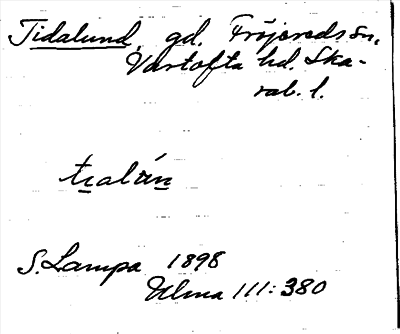 Tidalund, gd. Fröjereds sn,
Vartofta hd. Ska-
rab. l.
S. Lampa 1898
Ulma 111: 380